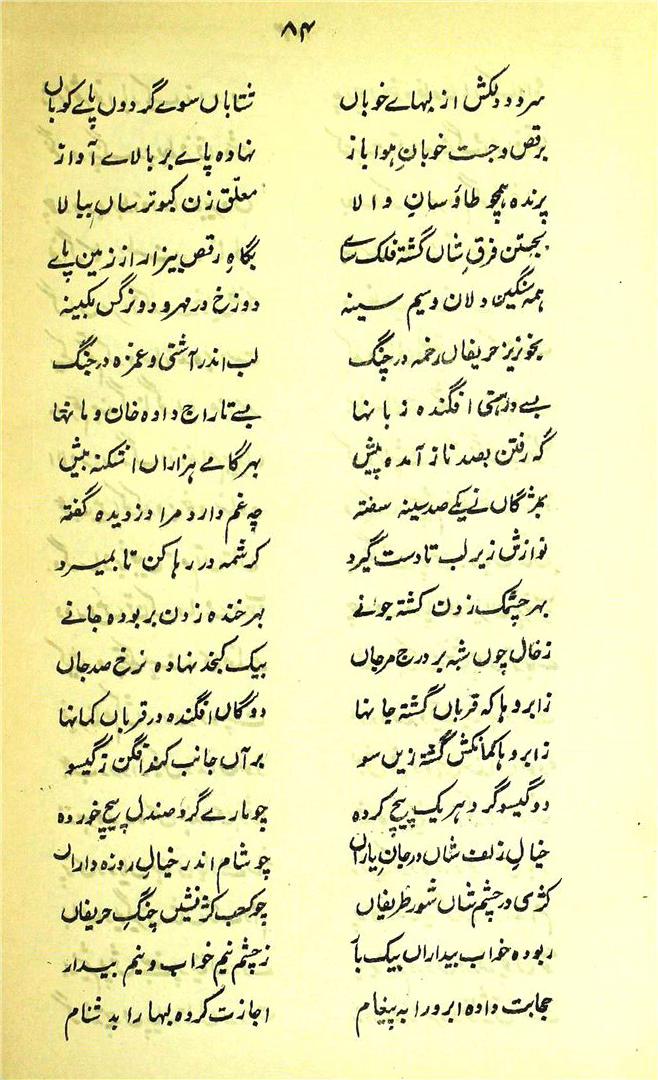 ۸۴
سرود دلکش از لبهاے خوباں شتاباں سوے گردوں پاے کوباں
برقص و جست خوبانِ ہوا باز نہادہ پاے بر بالاے آواز
پرندہ ہمچو طاؤسانِ والا معلّق زن کبوتر ساں ببالا
بجستن فرقِ شاں گشتہ فلک ساے بگاہِ رقص بیزار از زمین پاے
ہمہ سنگین دلان و سیم سینہ دو زخ در مہر و دو نرگس بکینہ
بخونریز حریفاں زخمہ در چنگ لب اندر آشتی و غمزہ در جنگ
بسے در مستی افگندہ زبانہا بسے تاراج دادہ خان و مانہا
گہ رفتن بصد ناز آمدہ پیش بہر گامے ہزاراں اشکنہ بیش
بمژگاں نے یکے صد سینہ سفتہ چہ غم دارد مرا دزدیدہ گفتہ
نوازش زیر لب تا دست گیرد کرشمہ در رہا کن تا بمیرد
بہر چشمک زدن کشتہ جوانے بہر خندہ زدن بربودہ جانے
زخال چوں شبہ بر درج مرجاں بیک کنجد نہادہ نرخ صد جاں
زابروہا کہ قرباں گشتہ جانہا دوگاں افگندہ در قرباں کمانہا
زابروہا کمانکش گشتہ زیں سو برآں جانب کمند افگن زگیسو
دو گیسو گرد ہر یک پیچ کردہ چو مارے گرد صندل پیچ خوردہ
خیالِ زلف شاں در جانِ یاراں چو شام اندر خیالِ روزہ داراں
کژی در چشم شاں شور ظریفاں چو کعب کژ نشیں چنگِ حریفاں
ربودہ خواب بیداراں بیک بار زچشم نیم خواب و نیم بیدار
حجابت دادہ ابرو را بہ پیغام اجازت کردہ لبہا را بدشنام